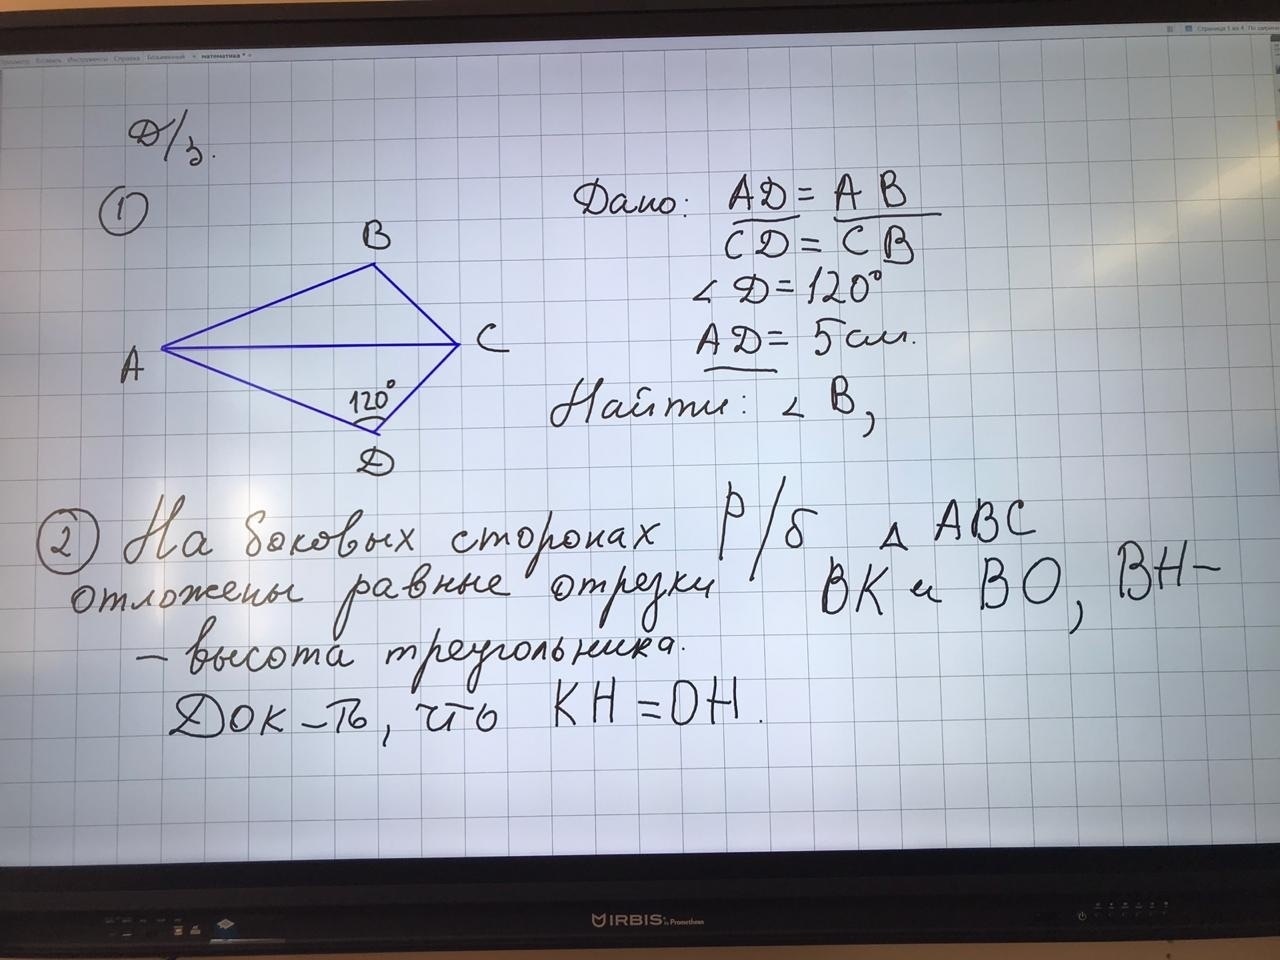 Вставить Инструменты Справка Безымянный математика *
Страница 1 из 4
Д/з.
1
Дано: AD = AB
CD = CB
B
∠ D = 120°
A
C
AD = 5 см.
120°
Найти: ∠ B,
D
2 На боковых сторонах р/б Δ ABC
отложены равные отрезки BK и BO, BH –
– высота треугольника.
Док-ть, что KH = OH.
IRBIS by Promethean